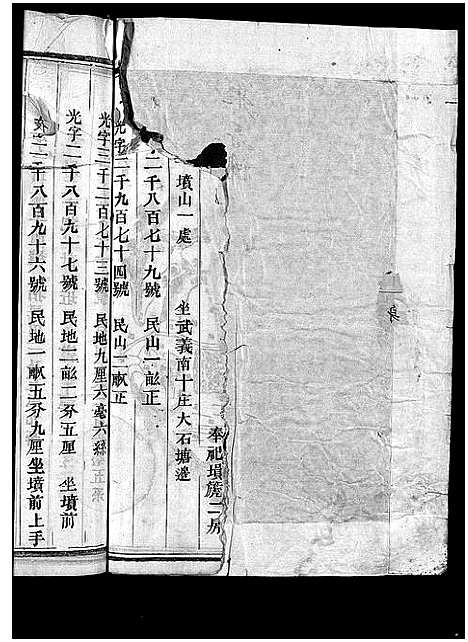 奉祀墳
墳山一處 坐武義南十庄大石塘邊
二千八百七十九號 民山一畝正
光字二千九百七十四號 民山一畝正
光字三千二百七十三號 民地九厘六毫六絲
光字二千八百九十七號 民地二畝二分五厘 坐墳前
二千八百九十六號 民地一畝五分九厘坐墳前上手